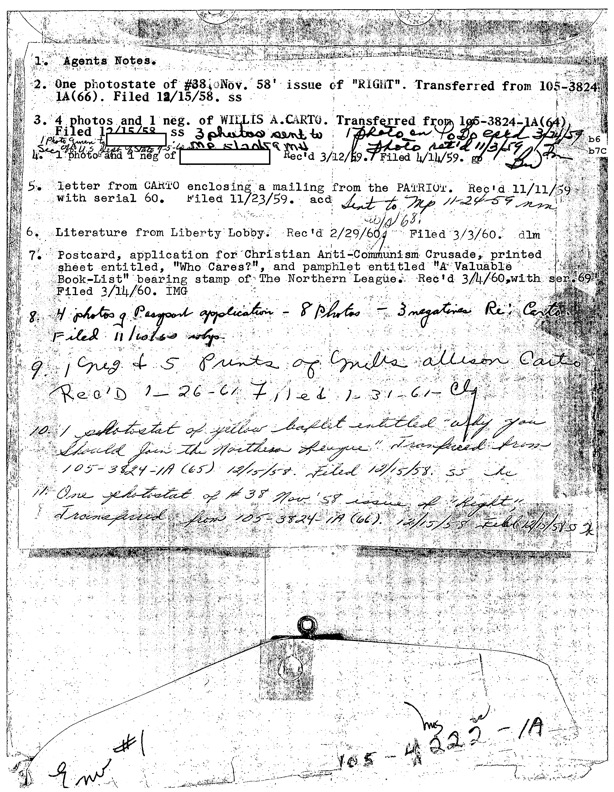 1. Agents Notes.
2. One photostate of #38, Nov. 58' issue of "RIGHT". Transferred from 105-3824
1A(66). Filed 12/15/58. ss
3. 4 photos and 1 neg. of WILLIS A.CARTO. Transferred from 105-3824-1A(64)
Filed 12/15/58 ss 3 photos sent to 1 photo on 3/24/59 b6
1 Photo given to photo ret'd 11/3/59 b7C
4. 1 photo and 1 neg of Rec'd 3/12/59. Filed 4/14/59. gp
5. letter from CARTO enclosing a mailing from the PATRIOT. Rec'd 11/11/59
with serial 60. Filed 11/23/59. acd Sent to 11-24-59
6. Literature from Liberty Lobby. Rec'd 2/29/60 Filed 3/3/60. dlm
7. Postcard, application for Christian Anti-Communism Crusade, printed
sheet entitled, "Who Cares?", and pamphlet entitled "A Valuable
Book-List" bearing stamp of The Northern League. Rec'd 3/4/60,with ser.69
Filed 3/14/60. IMG
8. 4 photos of Passport application - 8 Photos - 3 negatives Re: Carto
Filed 11/10/60
9. 1 Neg & 5 Prints of Willis Allison Carto
Rec'D 1-26-61 Filed 1-31-61-
10. 1 photostat of yellow leaflet entitled "Why you
should join the Northern League" Transfered from
105-3824-1A (65) 12/15/58. Filed 12/15/58. ss
11. One photostat of #38 Nov '58 issue of "Right"
Transfered from 105-3824-1A (66). 12/15/58 Filed 12/15/58
Env #1
105-4222-1A